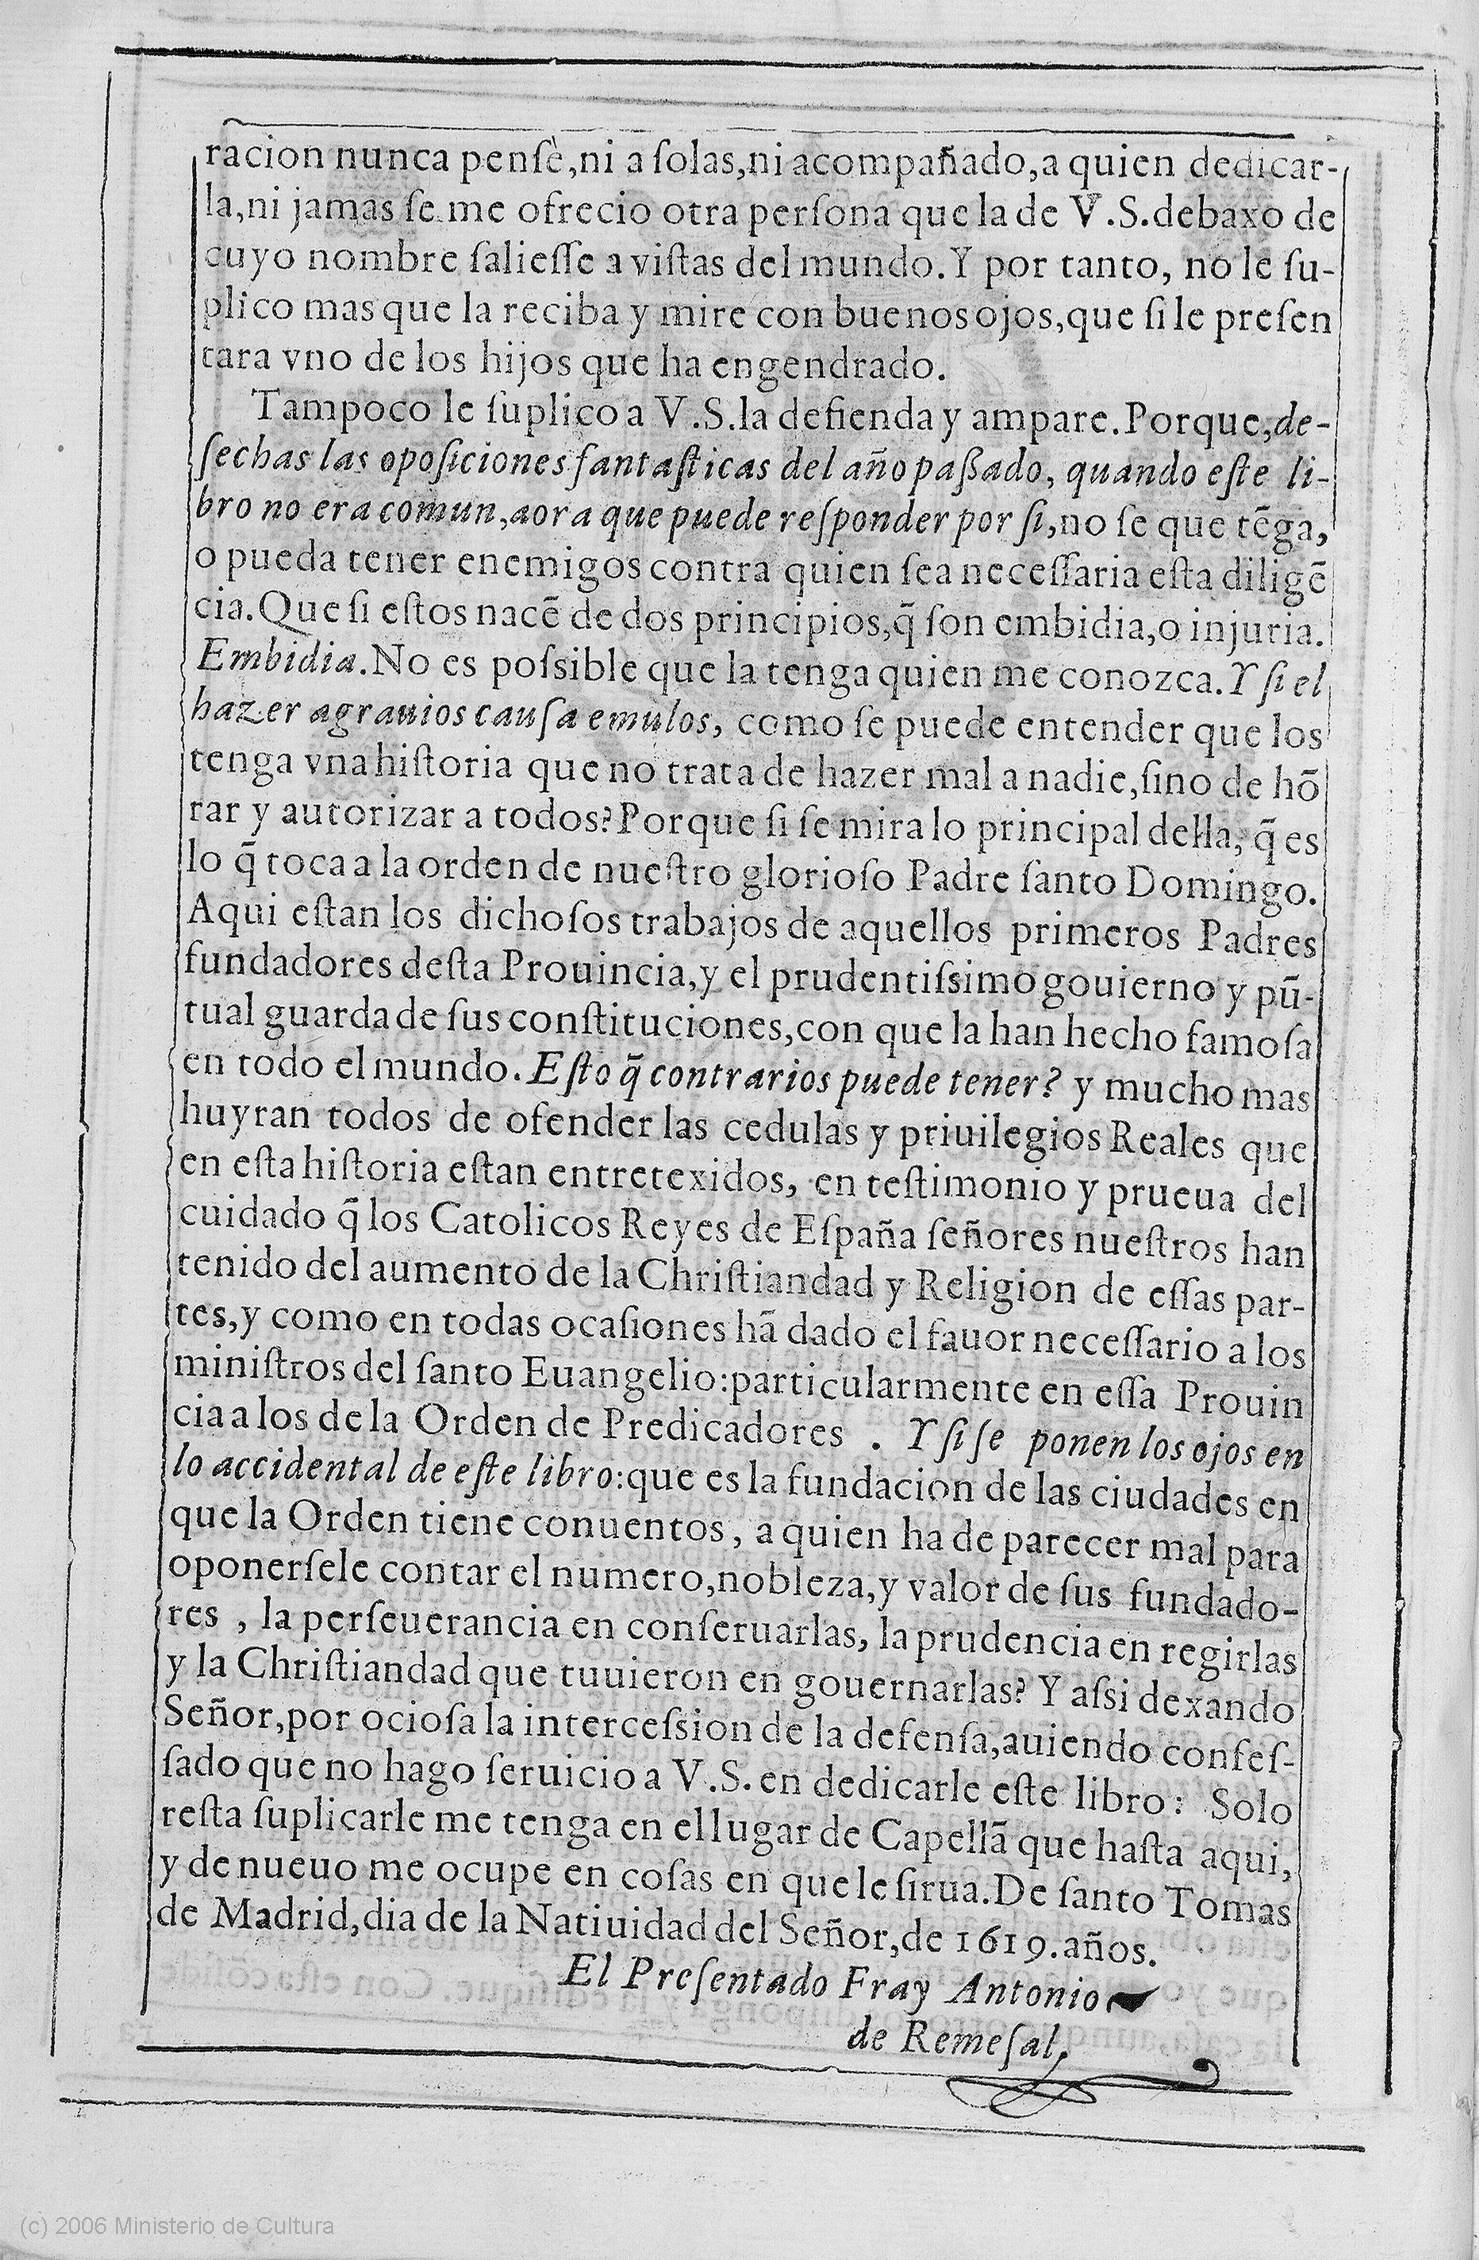 racion nunca pensè,ni a ſolas,ni acompañado,a quien dedicar-
la,ni jamas ſe me ofrecio otra perſona que la de V.S.debaxo de
cuyo nombre ſalieſſe a viſtas del mundo.Y por tanto, no le ſu-
plico mas que la reciba y mire con buenos ojos,que ſi le preſen
tara vno de los hijos que ha engendrado.
Tampoco le ſuplico a V.S.la defienda y ampare.Porque,de-
ſechas las opoſiciones fantaſticas del año paßado, quando eſte li-
bro no era comun,aora que puede reſponder por ſi,no ſe que tẽga,
o pueda tener enemigos contra quien ſea neceſſaria eſta diligẽ
cia.Que ſi eſtos nacẽ de dos principios,q̃ ſon embidia,o injuria.
Embidia.No es poſsible que la tenga quien me conozca.Y ſi el
hazer agrauios cauſa emulos, como ſe puede entender que los
tenga vna hiſtoria que no trata de hazer mal a nadie,ſino de hõ
rar y autorizar a todos?Porque ſi ſe mira lo principal della, q̃ es
lo q̃ toca a la orden de nueſtro glorioſo Padre ſanto Domingo.
Aqui eſtan los dichoſos trabajos de aquellos primeros Padres
fundadores deſta Prouincia,y el prudentiſsimo gouierno y pũ-
tual guarda de ſus conſtituciones,con que la han hecho famoſa
en todo el mundo.Eſto q̃ contrarios puede tener? y mucho mas
huyran todos de ofender las cedulas y priuilegios Reales que
en eſta hiſtoria eſtan entretexidos, en teſtimonio y prueua del
cuidado q̃ los Catolicos Reyes de Eſpaña ſeñores nueſtros han
tenido del aumento de la Chriſtiandad y Religion de eſſas par-
tes,y como en todas ocaſiones hã dado el fauor neceſſario a los
miniſtros del ſanto Euangelio:particularmente en eſſa Prouin
cia a los de la Orden de Predicadores . Y ſi ſe ponen los ojos en
lo accidental de eſte libro:que es la fundacion de las ciudades en
que la Orden tiene conuentos, a quien ha de parecer mal para
oponerſele contar el numero,nobleza,y valor de ſus fundado-
res , la perſeuerancia en conſeruarlas, la prudencia en regirlas
y la Chriſtiandad que tuuieron en gouernarlas? Y aſsi dexando
Señor,por ocioſa la interceſsion de la defenſa,auiendo confeſ-
ſado que no hago ſeruicio a V.S. en dedicarle eſte libro: Solo
reſta ſuplicarle me tenga en el lugar de Capellã que haſta aqui,
y de nueuo me ocupe en coſas en que le ſirua.De ſanto Tomas
de Madrid,dia de la Natiuidad del Señor,de 1619.años.
El Preſentado Fray Antonio
de Remeſal.
(c) 2006 Ministerio de Cultura